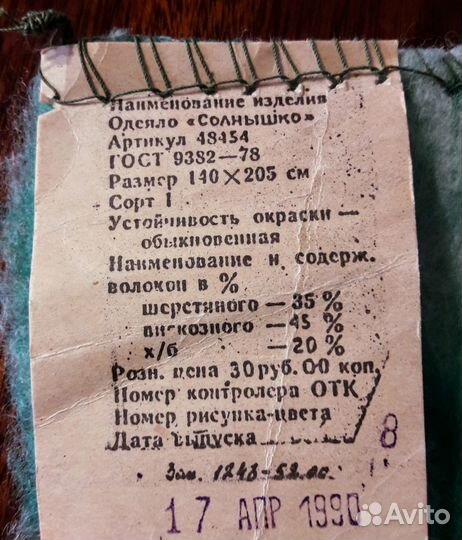 Наименование изделия
Одеяло «Солнышко»
Артикул 48454
ГОСТ 9382—78
Размер 140×205 см
Сорт I
Устойчивость окраски —
обыкновенная
Наименование и содерж.
волокон в %
шерстяного — 35 %
вискозного — 45 %
х/б — 20 %
Розн. цена 30 руб. 00 коп.
Номер контролера ОТК
Номер рисунка-цвета
8
Дата выпуска
Зак. 1248-
17 АПР 1990
Avito